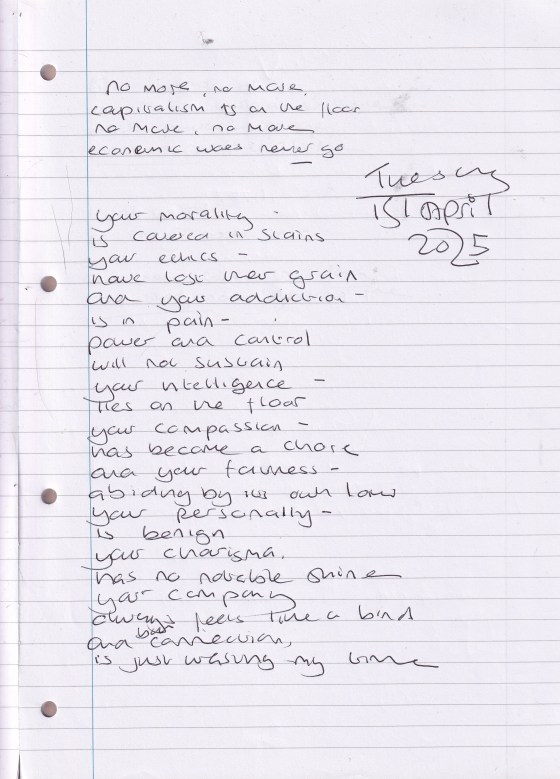 no more, no more,
capitalism is on the floor
no more, no more
economic woes never go
Tuesday
1st April
2025
your morality -
is covered in stains
your ethics -
have lost their grain
and your addiction -
is in pain -
power and control
will not sustain
your intelligence -
lies on the floor
your compassion -
has become a chore
and your fairness -
abiding by its own law
your personality -
is benign
your charisma,
has no noticible shine
your company
always feels like a bind
and your connection,
is just wasting my time